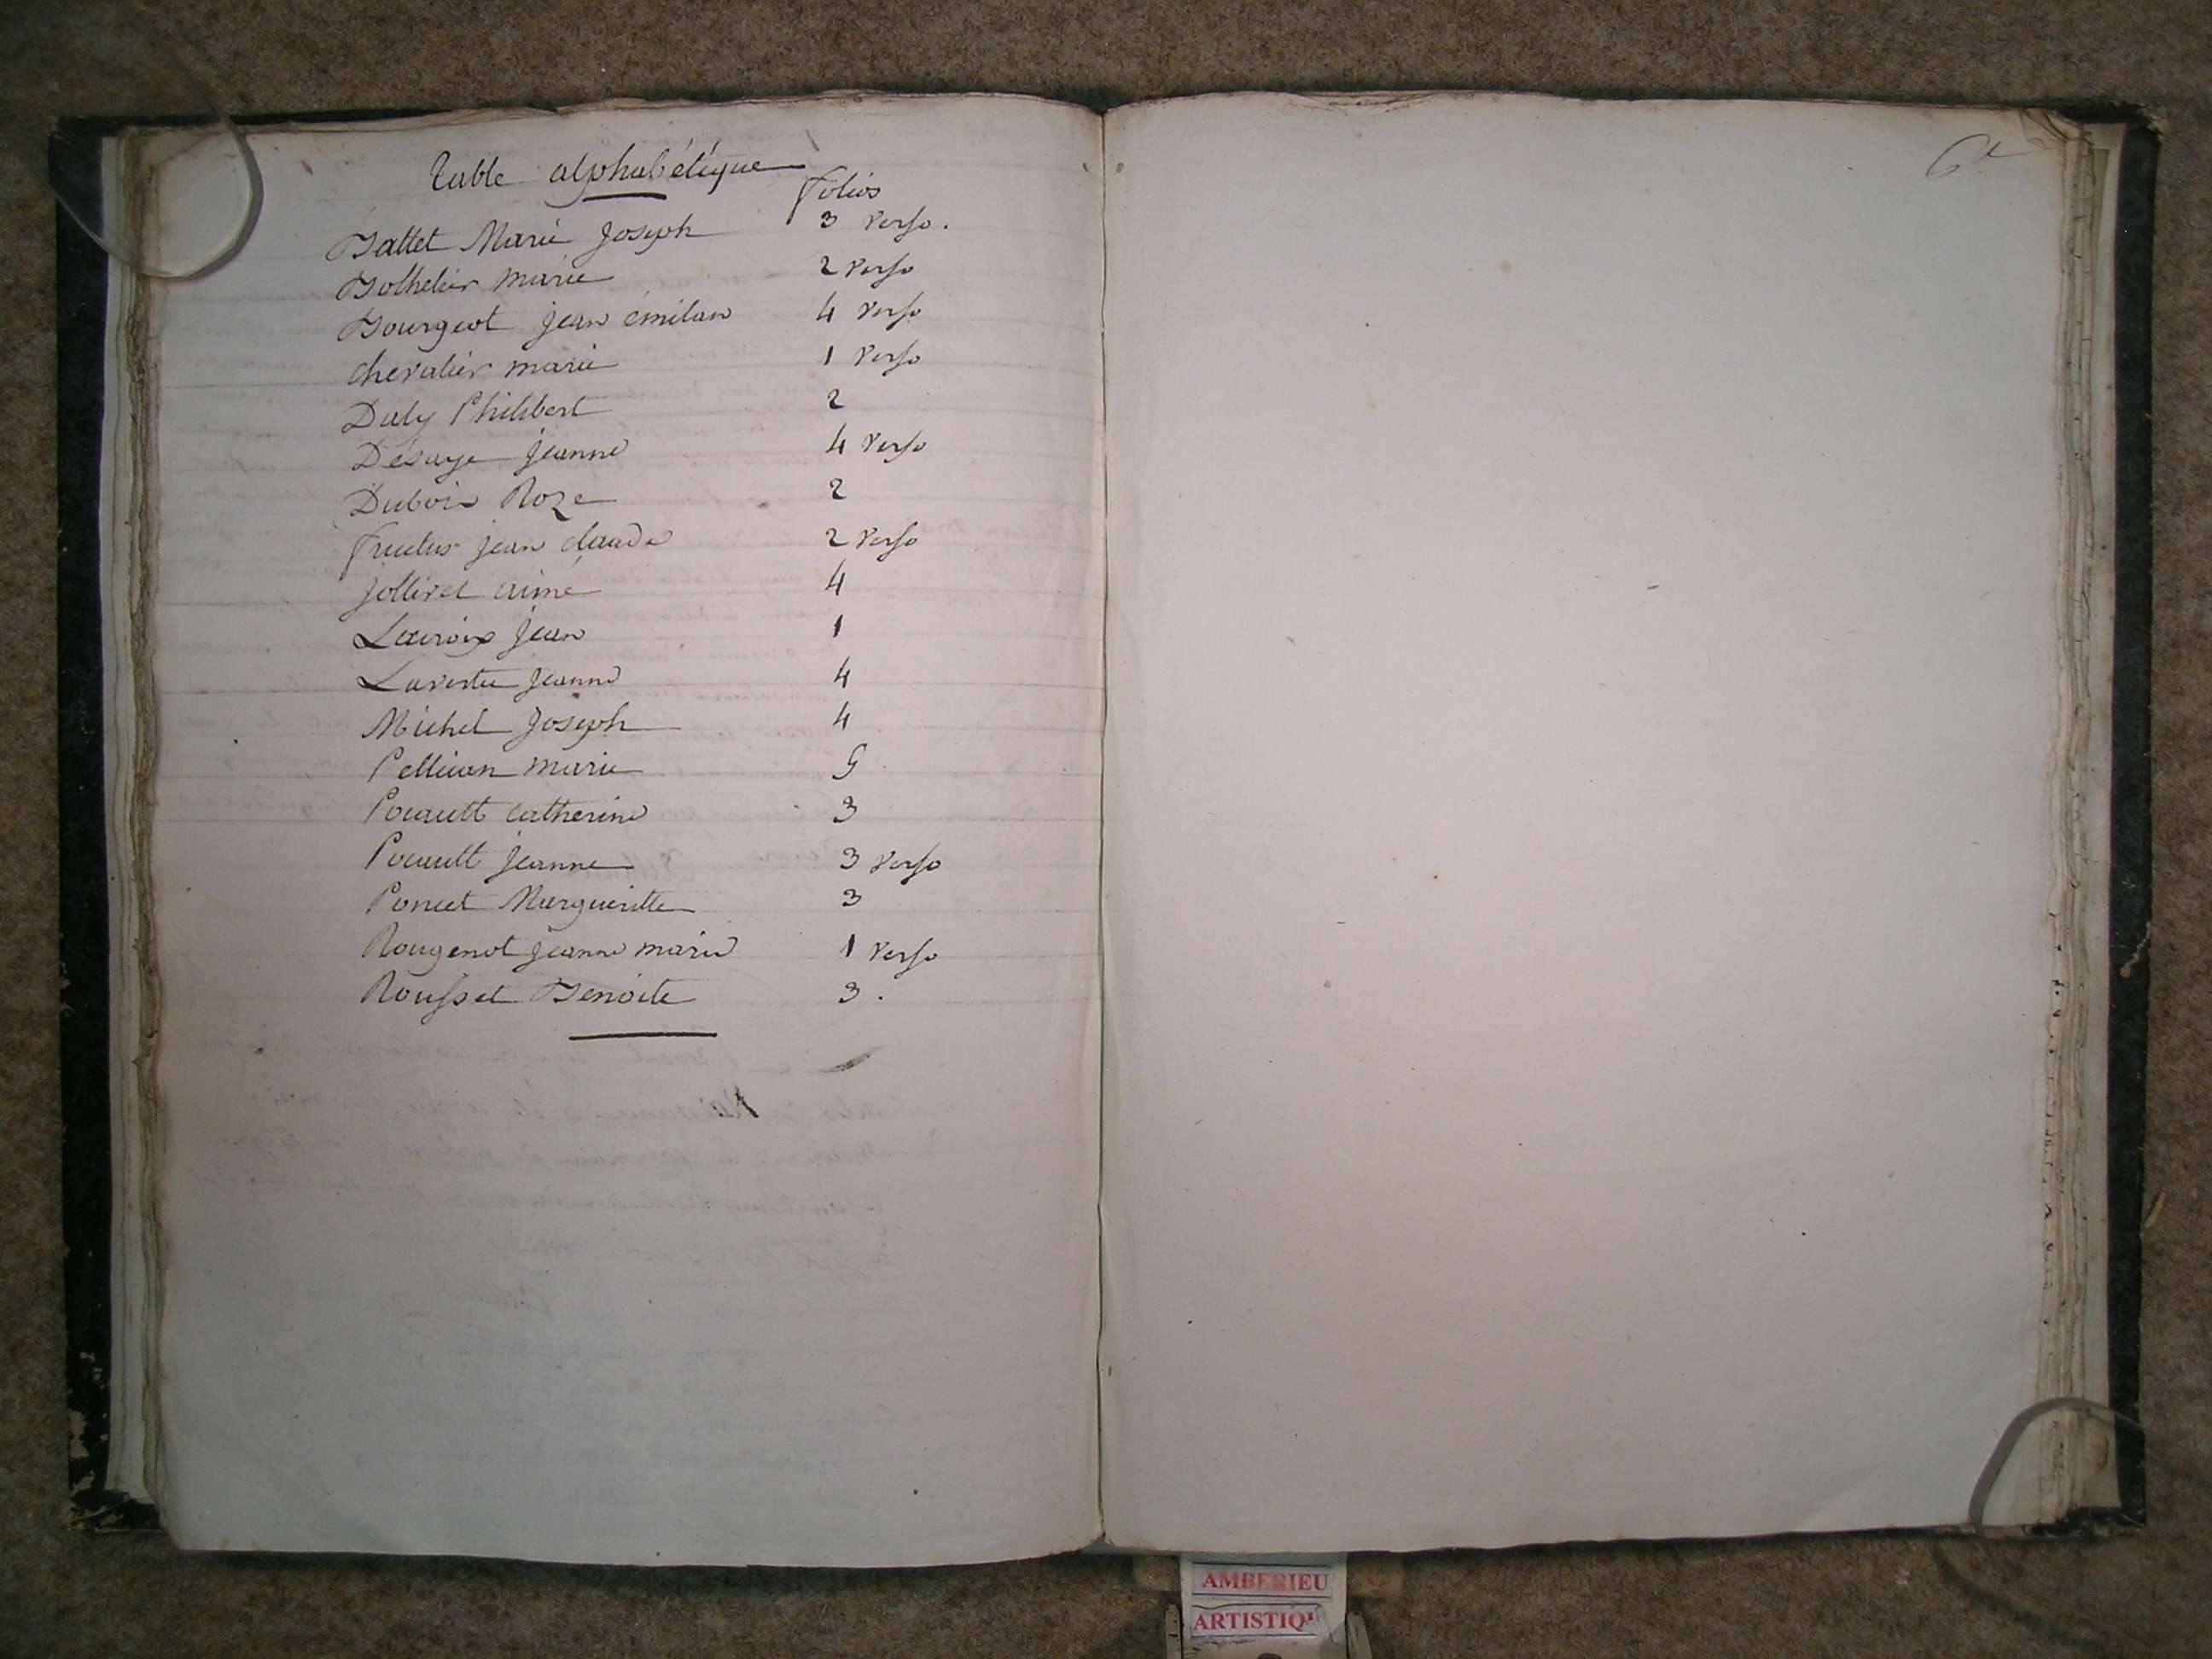 Table alphabétique
folios
Battet Marie Joseph 3 verso.
Bothelier marie 2 verso
Bourgeot jean émilan 4 verso
chevalier marie 1 verso
Daly Philibert 2
Désaye jeanne 4 verso
Dubois Roze 2
fructus jean claude 2 verso
jollivet aimé 4
Lacroix jean 1
Lavertu jeanne 4
Michel Joseph 4
Pellicon marie 5
Pocault catherine 3
Pocault jeanne 3 verso
Poncet Margueritte 3
Rougenot jeanne marie 1 verso
Rousset Benoite 3.
6e
AMBERIEU
ARTISTIQ